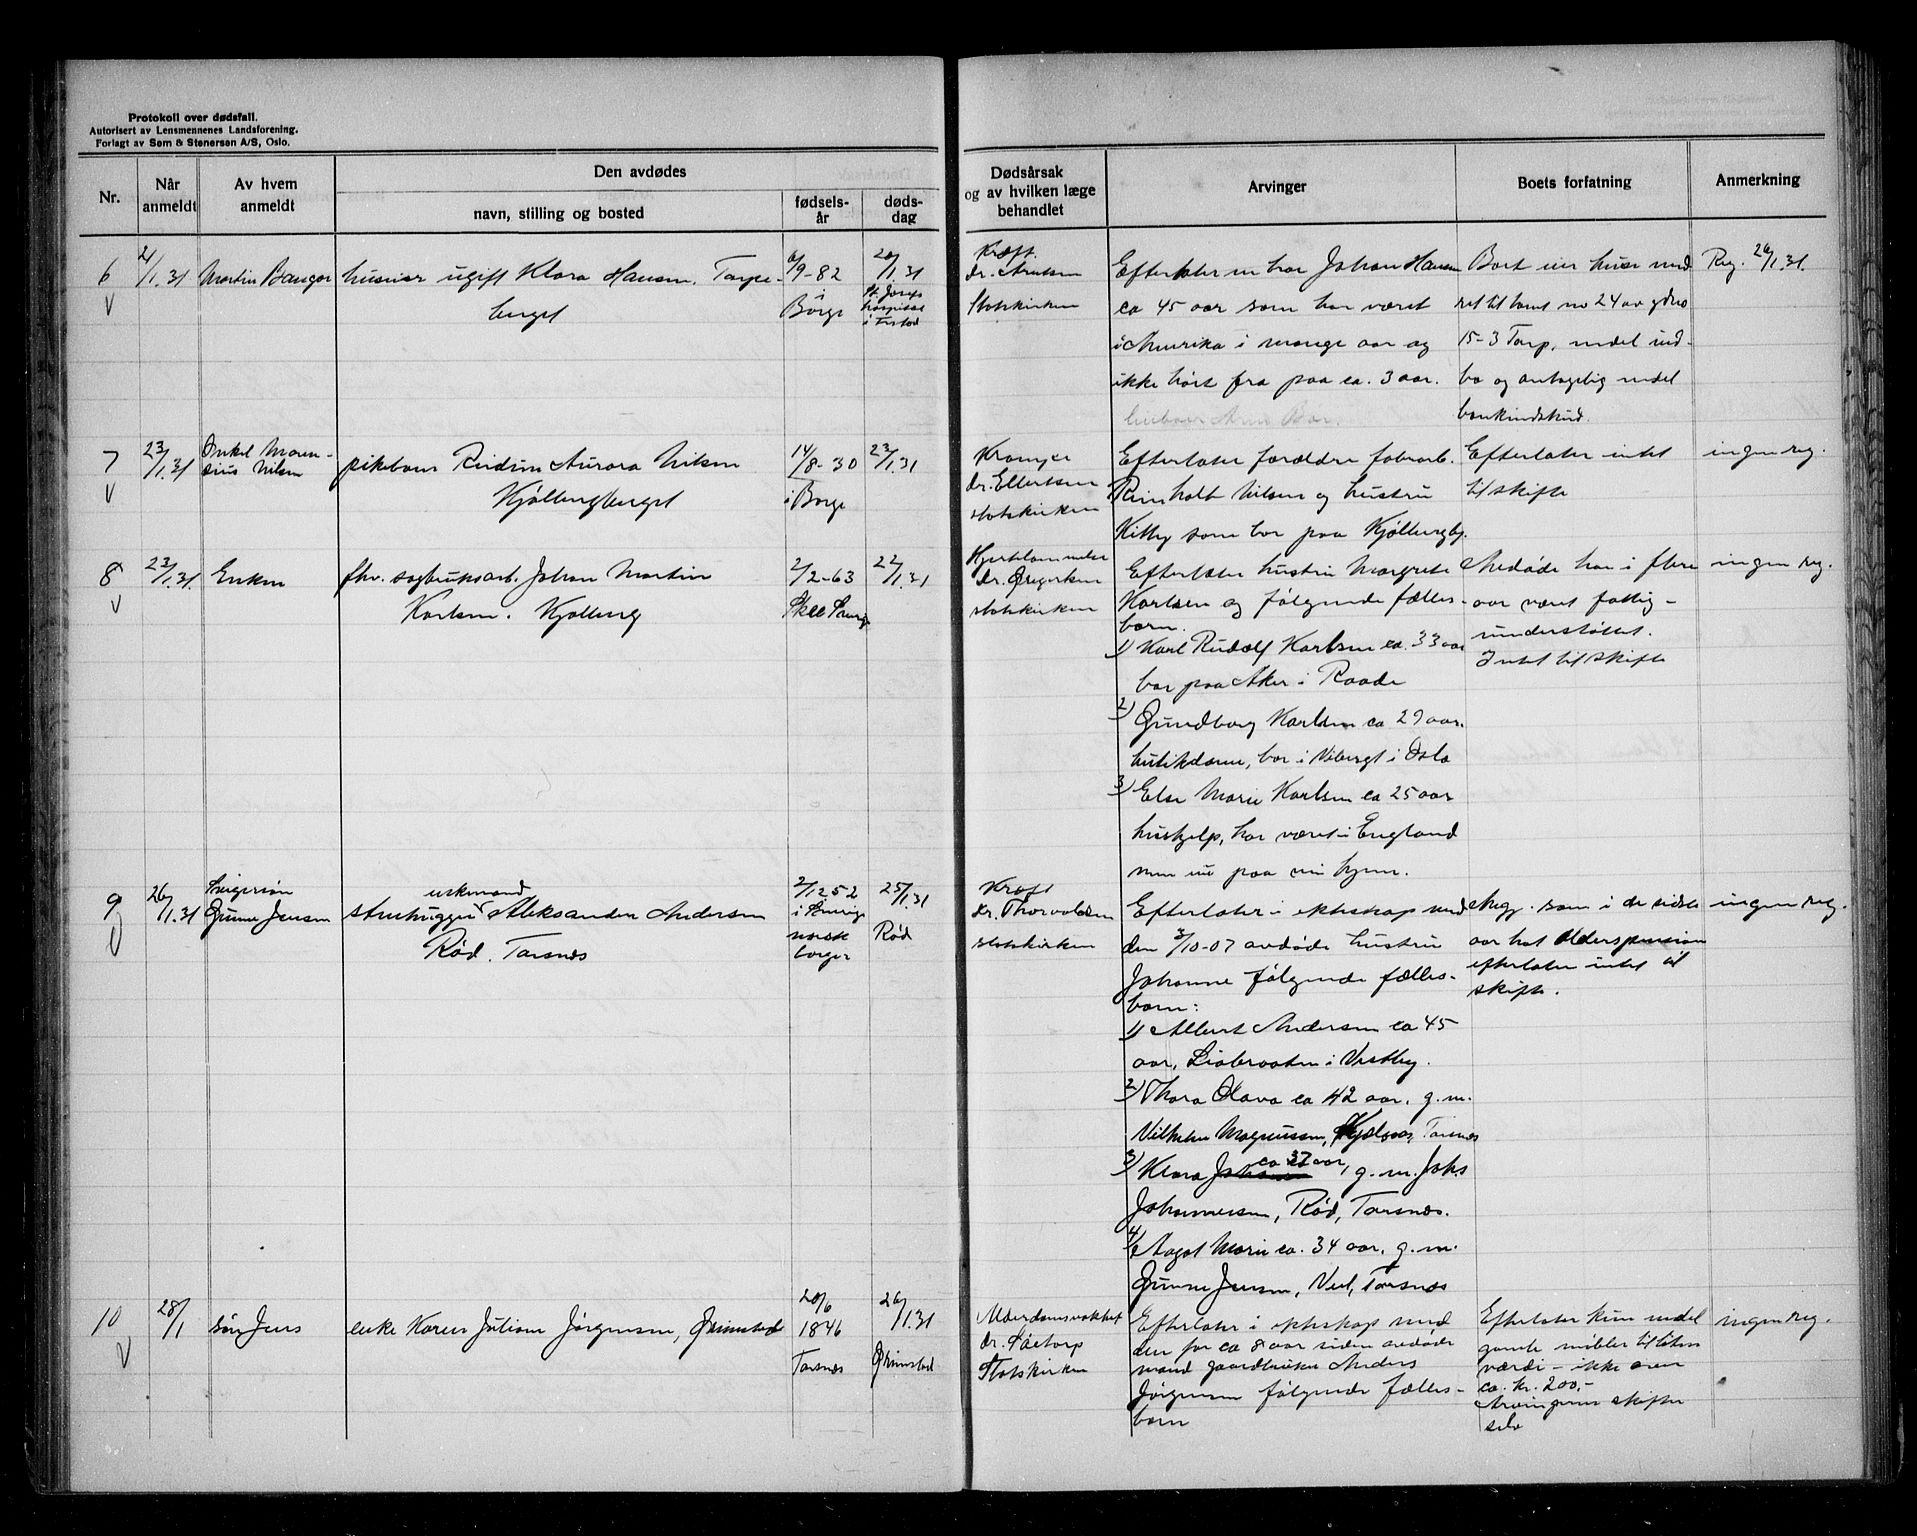 Protokoll over dødsfall.
Autorisert av Lensmennenes Landsforening.
Forlagt av Søm & Stenersen A/S, Oslo.
Nr.
Når anmeldt
Av hvem anmeldt
Den avdødes
navn, stilling og bosted
fødsels-år
døds-dag
Dødsårsak og av hvilken læge behandlet
Arvinger
Boets forfatning
Anmerkning
6
/1.31
Martin Bangor
huseier ugift Klara Hansen. Tarpe-
berget
6/9-82
i Borge
20/1.31
St. Josefs
hospital
i Fr.stad
Kræft.
dr.
Statskirken
Efterlater en bror Johan Hansen
ca 45 aar som har været
i Amerika i mange aar og
ikke hørt fra paa ca. 3 aar.
Boet eier hus med
ret til tomt no 24 av gdno
15-3 Tarp, endel ind-
bo og antagelig endel
bankindskud.
Reg. 26/1.31.
7
23/1.31
Onkel Maren-
sius Nilsen
pikebarn Reidun Aurora Nilsen
Kjølbergberget
14/8-30
i Borge
23/1.31
Krampe
dr. Ellertsen
statskirken
Efterlater forældre fabrarb.
Reinholt Nilsen og hustru
Kitty som bor paa Kjølbergbg.
Efterlater intet
til skifte
ingen reg.
8
23/1.31.
Enken
fhv. sagbruksarb. Johan Martin
Karlsen. Kjølberg
2/2-63
Skee Sverige
22/1.31
Hjertelammelse
dr. Gregersen
statskirken
Efterlater hustru Margrete
Karlsen og følgende fælles-
barn.
1) Karl Rudolf Karlsen ca. 33 aar
bor paa Aker i Raade
2) Gundborg Karlsen ca 29 aar.
butikdame, bor i Vibesgt i Oslo
3) Else Marie Karlsen ca 25 aar
hushjelp, har været i England
men nu paa vei hjem.
Avdøde har i flere
aar været fattig-
understøttet.
Intet til skifte
ingen reg.
9
26/1.31
Svigersøn
Gunne Jensen
enkemand
stenhugger Aleksander Andersen
Rød. Torsnes
2/12 52
i Sverige
norsk
borger
25/1.31
Rød
Kræft
dr. Thorvaldsen
statskirken
Efterlater i ekteskap med
den 3/10-07 avdøde hustru
Johanne følgende fælles-
barn:
1) Albert Andersen ca 45
aar, Liabraaten i Vestby.
2) Thora Olava ca 42 aar. g.m.
Vilhelm Magnussen, Torsnes
3) Klara ca 37 aar, g.m. Johs
Johannessen, Rød, Torsnes.
4) Aagot Marie ca. 34 aar. g.m.
Gunne Jensen, Vel, Torsnes
Avg. som i de sidste
aar hat alderspension
efterlater intet til
skifte.
ingen reg.
10
28/1
søn Jens
enke Karen Juliane Jørgensen, Grimstad
20/6
1846
Torsnes
26/1.31
Grimstad
Alderdomssvakhet
dr. Sætorp
Statskirken
Efterlater i ekteskap med
den for ca 8 aar siden avdøde
mand gaardbruker Anders
Jørgensen følgende fælles-
barn
Efterlater kun endel
gamle møbler til liten
værdi - ikke over
ca. kr. 200,-
Arvingerne skifter
selv
ingen reg.